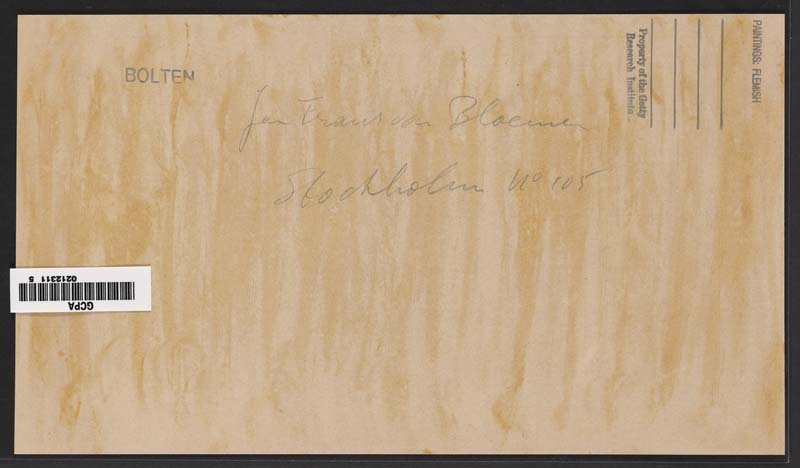 BOLTEN
Jan Frans van Bloemen
Stockholm No 105
Property of the Getty
Research Institute
PAINTINGS: FLEMISH
GCPA
0212311 5